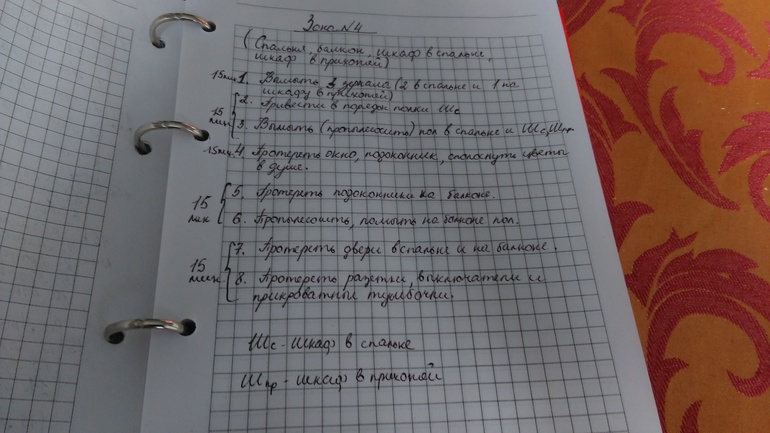 Зона №4
(Спальня, балкон, шкаф в спальне,
шкаф в прихожей)
15мин 1. Вымыть 3 зеркала (2 в спальне и 1 на
шкафу в прихожей)
15 мин 2. Привести в порядок полки Шс
3. Вымыть (пропылесосить) пол в спальне и Шс, Шпр
15мин 4. Протереть окно, подоконник, сполоснуть цветы
в душе.
15 мин 5. Протереть подоконники на балконе.
6. Пропылесосить, помыть на балконе пол.
15 мин 7. Протереть двери в спальне и на балконе.
8. Протереть разетки, выключатели и
прикроватные тумбочки.
Шс - шкаф в спальне
Шпр - шкаф в прихожей